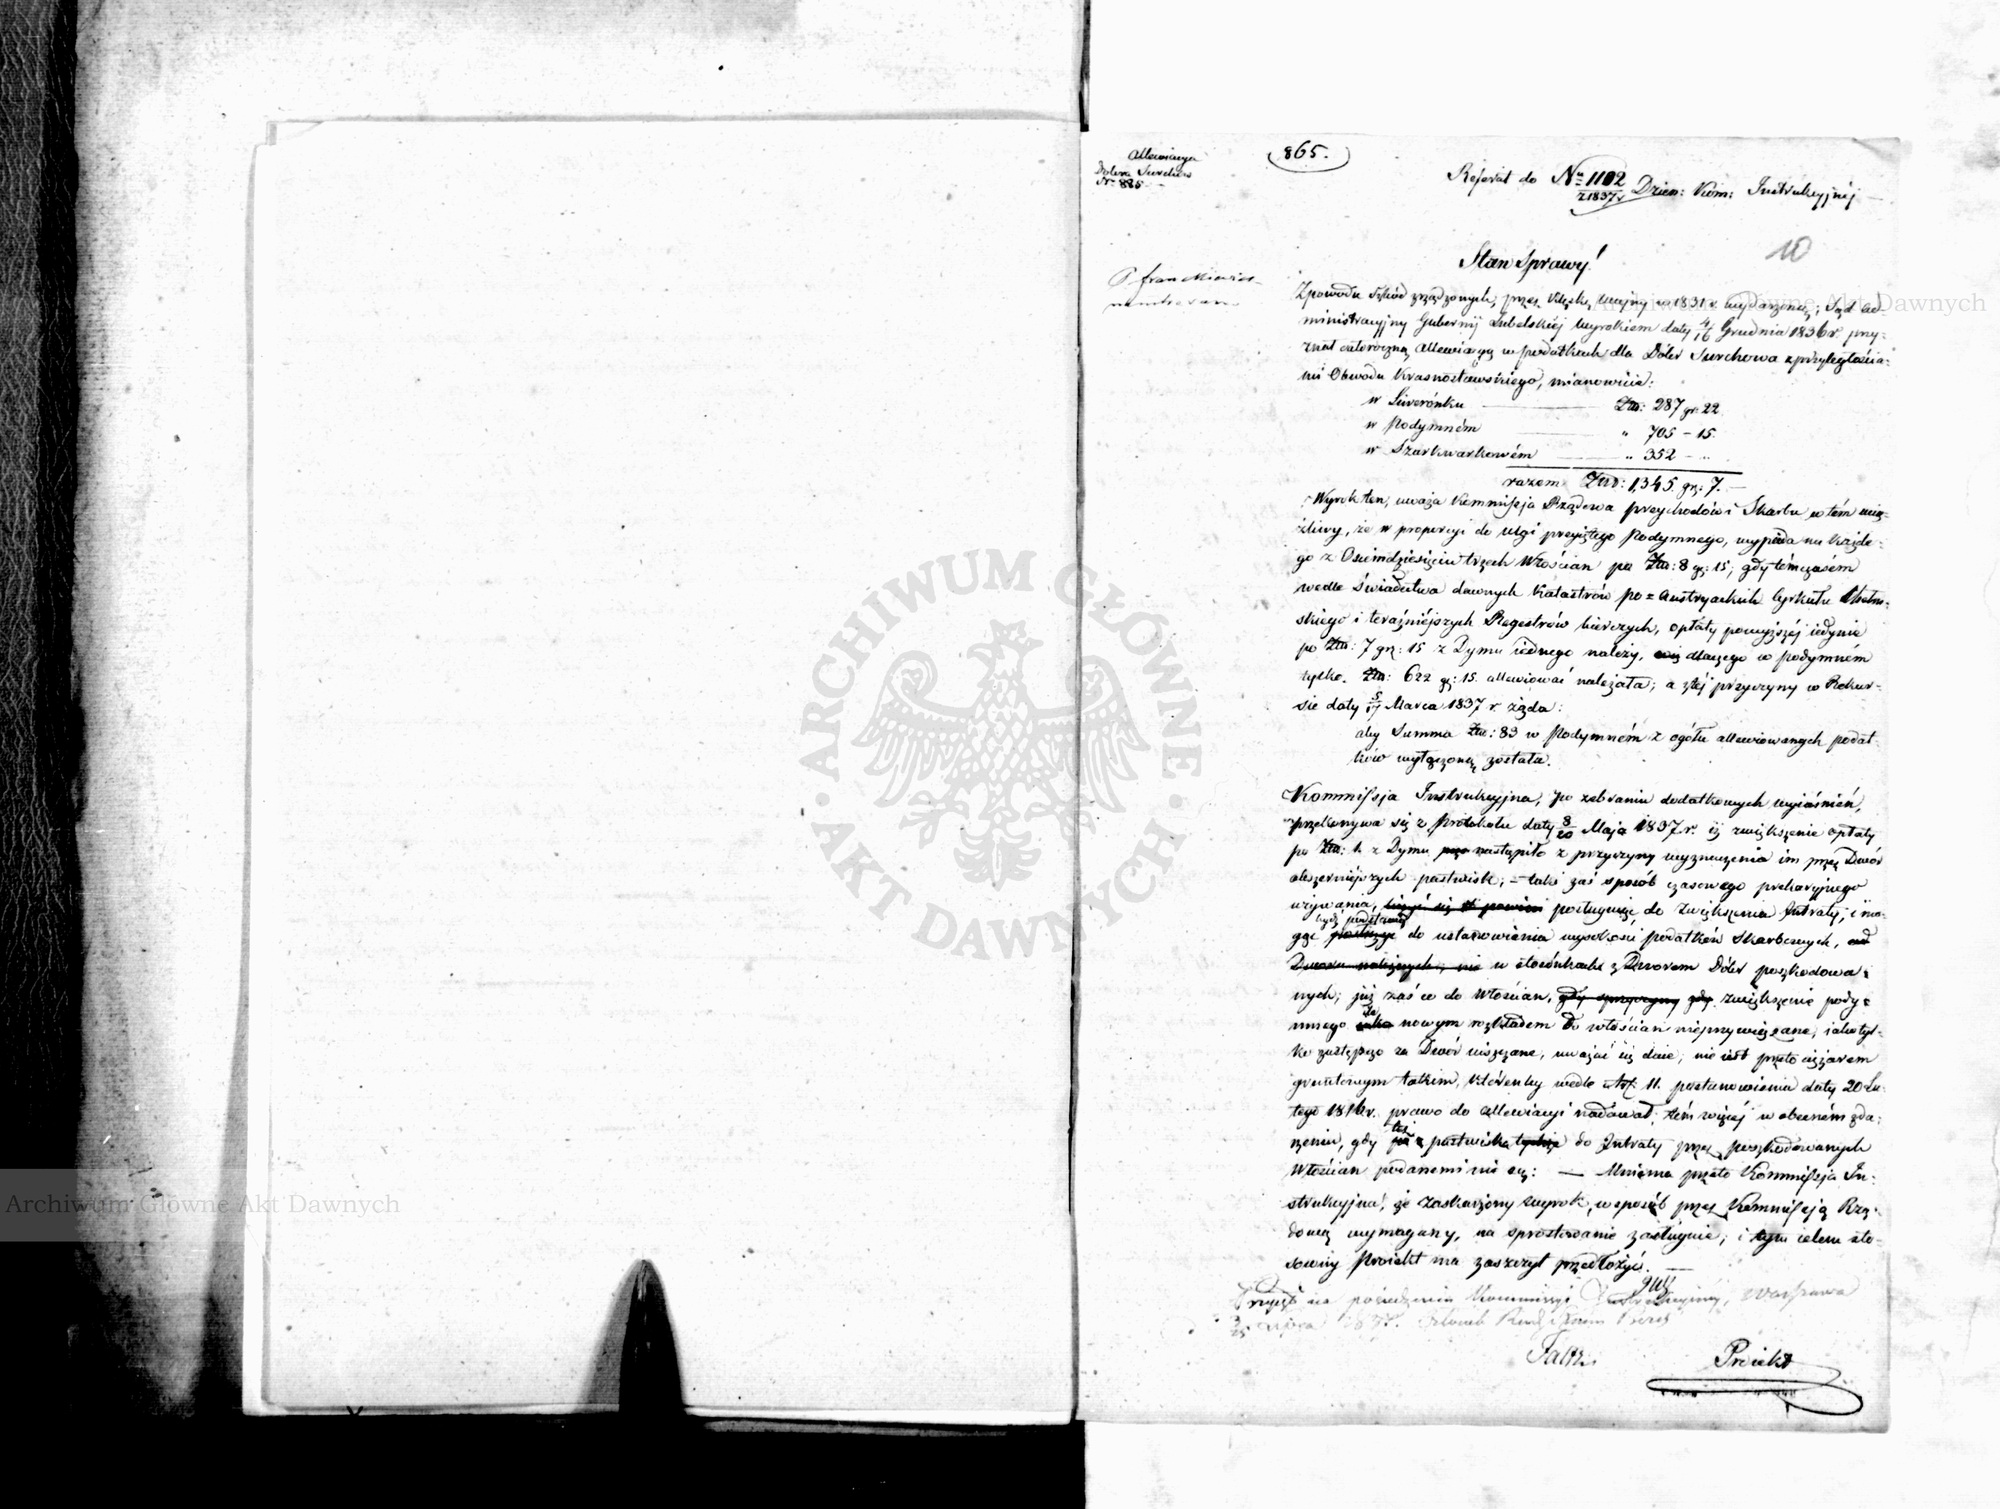 865.
Allewiacya
Dobra Surchów
Nr 885
Referat do Nr 1102 z 1837 r. Dzien: Kom: Instrukcyjnéj
10
Stan Sprawy!
Z powodu szkód zrządzonych, przez klęskę wojny w 1831 r. wydarzoną; Sąd ad-
ministracyjny Gubernij Lubelskiéj Wyrokiem daty 4/16 Grudnia 1836 r. przy-
znał całoroczną Allewiacyą w podatkach dla Dóbr Surchowa z przyległościa-
mi Obwodu Krasnostawskiego, mianowicie:
w Liwerónku Złp: 287 gr: 22
w Podymném " 705 - 15.
w Szarwarkowém " 352 - "
razem Złp: 1,345 gr: 7. -
Wyrok ten, uważa Kommissja Rządowa przychodów i Skarbu w tém uciąż-
żliwy, że w proporcyi do ulgi przyjętego Podymnego, wypada na każde-
go z Osiemdziesięciu trzech Włościan po Złp: 8 gr: 15; gdy tymczasem
wedle świadectwa dawnych Katastrów po=Austryackich Cyrkułu Chełm-
skiégo i teraźniejszych Regestrów bierczych, opłaty powyższéj iedynie
po Złp: 7 gr: 15 z Dymu iednego należy, dlaczego w podymném
tylko. Złp: 622 gr: 15. allewiować należało; a z téj przyczyny w Rekur-
sie daty 5/17 Marca 1837 r. żąda:
aby Summa Złp: 83 w Podymném z ogółu allewiowanych podat-
ków wyłączoną została.
Kommissja Instrukcyjna, po zebraniu dodatkowych wyiaśnień,
przekonywa się z Protokołu daty 8/20 Maja 1837 r. iż zwiększenie opłaty
po Złp: 1. z Dymu nastąpiło z przyczyny wyznaczenia im przez Dwór
obszerniejszych pastwisk; - taki zaś sposób czasowego prekaryjnego
używania, posługuiąc do zwiększenia Intraty, i mo-
gąc być podstawą do ustanowienia wysokości podatków Skarbowych,
w stosunkach z Dworem Dóbr poszkodowa-
nych; już zaś co do Włościan, zwiększenie pody-
mnego nowym rozkładem do włościan nieprzywiązane, iako tyl-
ko zastępczo za Dwór uiszczane, uważać się daie, nie iest przeto ciężarem
gruntowym takim, którenby wedle Art. 11. postanowienia daty 20 Lu-
tego 1816 r. prawo do allewiacyi nadawał, tém więcéj w obecném zda-
rzeniu, gdy też pastwiska do Intraty przez poszkodowanych
Włościan podanemi nie są: - Mniema przeto Kommissja In-
strukcyjna, że zaskarżony wyrok, w sposób przez Kommissją Rzą-
dową wymagany, na sprostowanie zasługuie; i tym celem sto-
sowny Proiekt ma zaszczyt przedłożyć. -
Przyjęto na posiedzeniu Kommissyi Instrukcyjnéj, Warszawa
Lipca 1837.
Proiekt
ARCHIWUM GŁÓWNE
AKT DAWNYCH
Archiwum Główne Akt Dawnych
Archiwum Główne Akt Dawnych